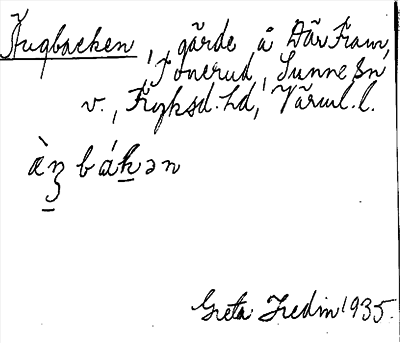 Ängbacken, gärde å Där Fram,
Tonerud, Sunne Sn
v., Fryksd. hd, Värml. l.
Greta Hedin 1935.